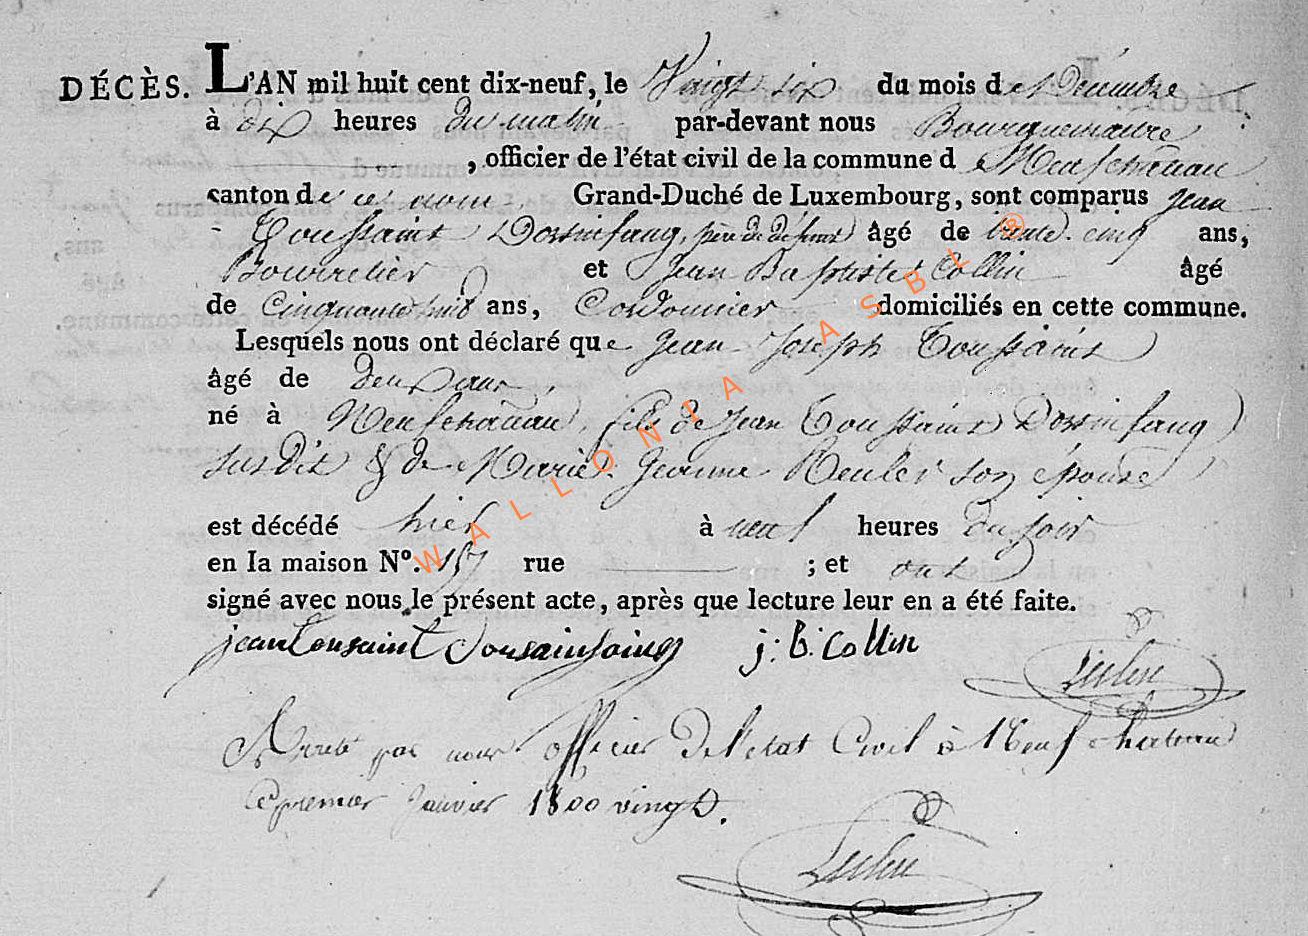 DÉCÈS. L'AN mil huit cent dix-neuf, le Vingt six du mois de Décembre
à dix heures du matin par-devant nous Bourguemaitre
, officier de l'état civil de la commune de Neufchateau
canton de ce nom Grand-Duché de Luxembourg, sont comparus Jean
Toussaint Dossinfang, père du défunt âgé de trente cinq ans,
Bourrelier et Jean Baptiste Collin âgé
de Cinquante huit ans, Cordonnier domiciliés en cette commune.
Lesquels nous ont déclaré que Jean Joseph Toussaint
âgé de deux ans
né à Neufchateau, fils de Jean Toussaint Dossinfang
susdit & de Marie Jeanne son épouse
est décédé hier à neuf heures du soir
en la maison N°. 157 rue ; et ont
signé avec nous le présent acte, après que lecture leur en a été faite.
jean tousaint dousainfaing j. b. Collin
Arreté par nous officier de l'etat Civil à Neufchateau
Ce premier Janvier 1800 vingt.
WALLONIA ASBL ®